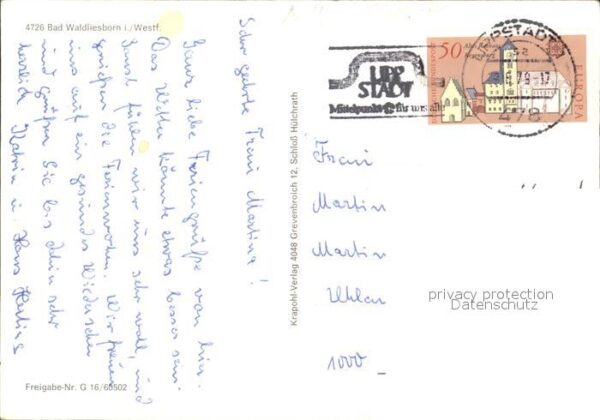 4726 Bad Waldliesborn i./Westf.
Sehr geehrte Frau Martina!
Ganz liebe Feriengrüße von hier.
Das Wetter könnte etwas besser sein.
Sonst fühlen wir uns sehr wohl, und
genießen die Ferienwochen. Wir freuen
uns auf ein gesundes Wiedersehen
und grüßen Sie bis dahin sehr
herzlich Katrin u. Hans
Freigabe-Nr. G 16/60502
Krapohl-Verlag 4048 Grevenbroich 12, Schloß Hülchrath
LIPPSTADT
LIPP
STADT
Mittelpunkt für uns alle
478
50
EUROPA
Frau
Martin
Martin
Uhlen
1000
privacy protection
Datenschutz